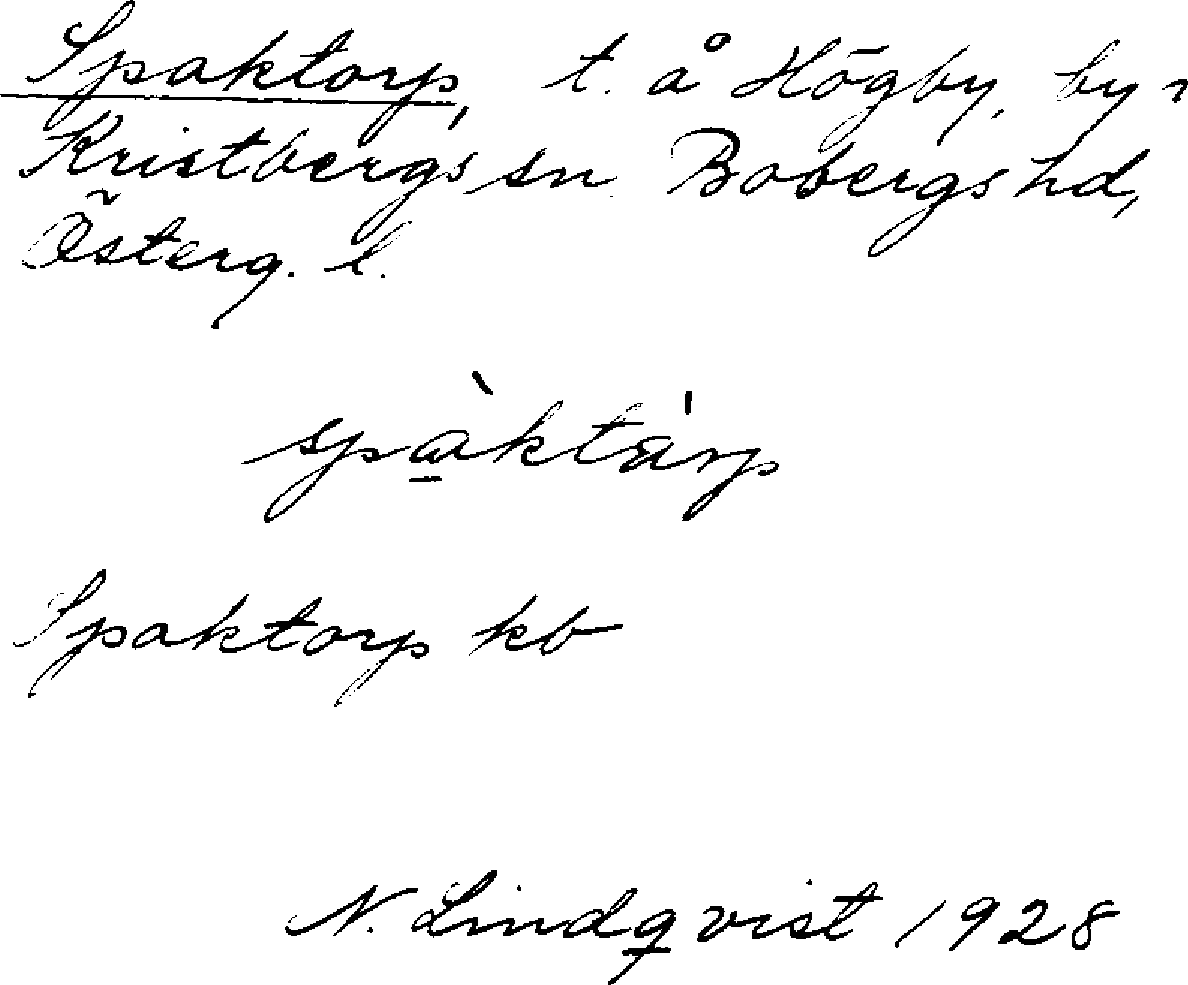 Spaktorp, t. å Högby, by i
Kristbergs sn Bobergs hd,
Österg. l.
spà̱ktàrp
Spaktorp kb
N. Lindqvist 1928